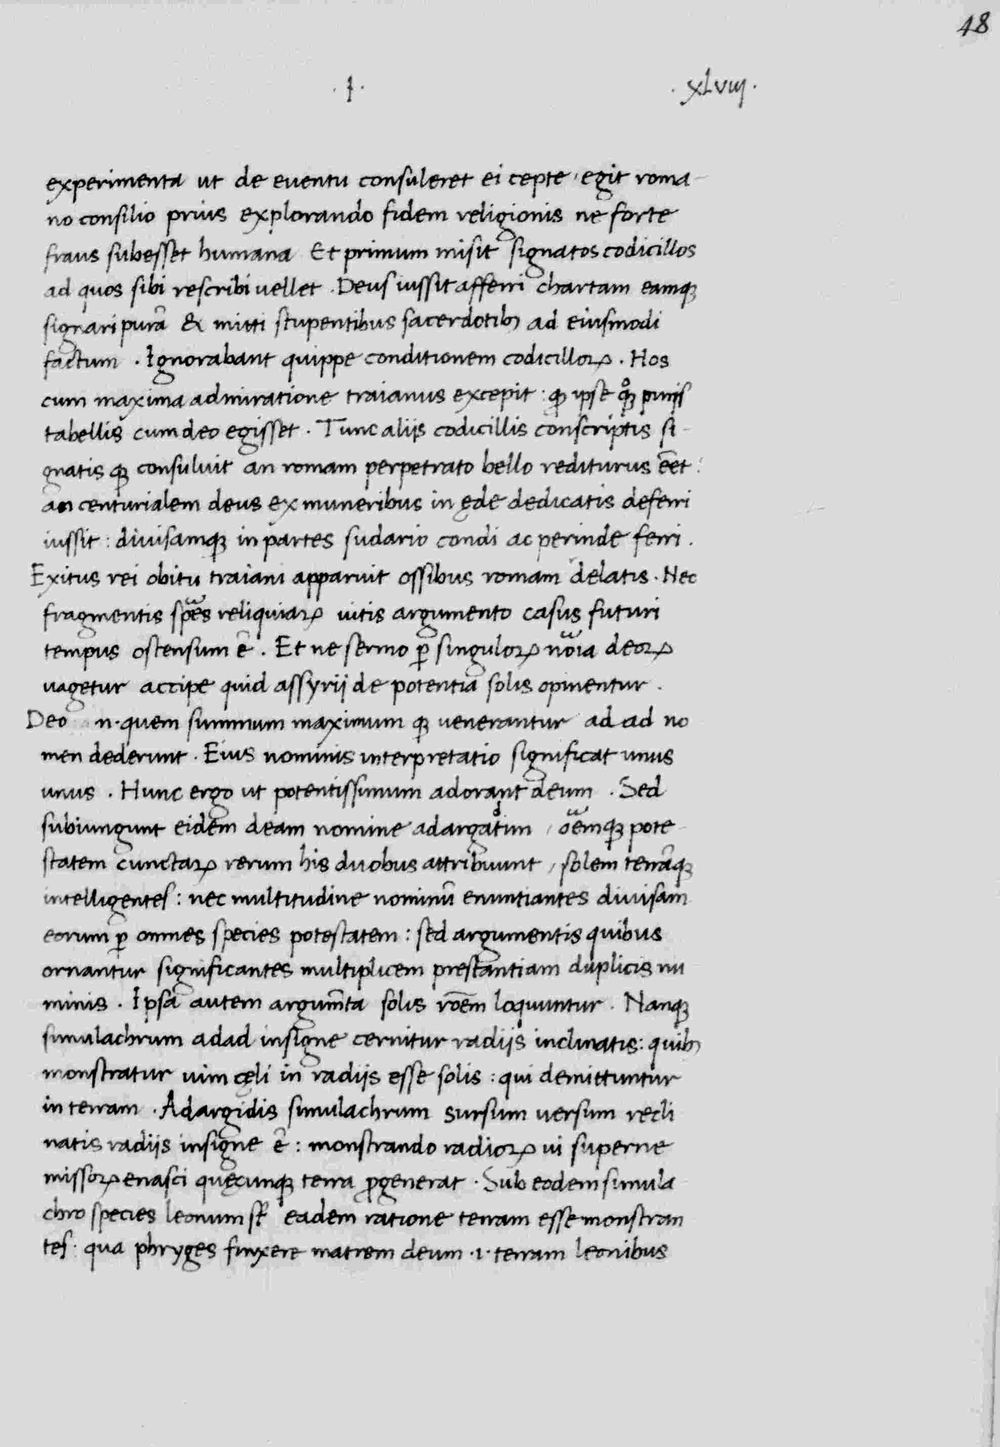 48
· I · · xLviij ·
experimenta ut de euentu consuleret ei cepte · egit roma-
no consilio prius explorando fidem religionis ne forte
fraus subesset humana Et primum misit signatos codicillos
ad quos sibi rescribi uellet . Deus iussit afferri chartam eamqꝫ
signari purã & mitti stupentibus sacerdotibꝫ ad eiusmodi
factum . Ignorabant quippe conditionem codicilloꝝ . Hos
cum maxima admiratione traianus excepit : ipse
tabellis cum deo egisset . Tunc aliis codicillis conscriptis si-
gnatis qꝫ consuluit an romam perpetrato bello rediturus eẽt :
an centurialem deus ex muneribus in ęde dedicatis deferri
iussit : diuisamqꝫ in partes sudario condi ac perinde ferri .
Exitus rei obitu traiani apparuit ossibus romam delatis . Nec
fragmentis spẽs reliquiaꝝ uitis argumento casus futuri
tempus ostensum ẽ . Et ne sermo ꝑ singuloꝝ nõia deoꝝ
uagetur accipe quid assyrij de potentia solis opinentur .
Deo .n. quem summum maximum qꝫ uenerantur ad ad no
men dederunt . Eius nominis interpretatio significat unus
unus . Hunc ergo ut potentissimum adorant deum . Sed
subiungunt eidem deam nomine adargatim , oẽmqꝫ pote
statem cunctaꝝ rerum his duobus attribuunt , solem terrãqꝫ
intelligentes : nec multitudine nominũ enuntiantes diuisam
eorum ꝑ omnes species potestatem : sed argumentis quibus
ornantur significantes multiplicem prestantiam duplicis nu
minis . Ipsã autem argumẽta solis rõem loquuntur . Nanqꝫ
simulachrum adad insigne cernitur radiis inclinatis : quibꝫ
monstratur uim cęli in radiis esse solis : qui demittuntur
in terram . Adargidis simulachrum sursum uersum recli
natis radiis insigne ẽ : monstrando radioꝝ ui superne
missoꝝ enasci quęcunqꝫ terra ꝓgenerat . Sub eodem simula
chro species leonum sũt eadem ratione terram esse monstran
tes . qua phryges finxere matrem deum .i. terram leonibus